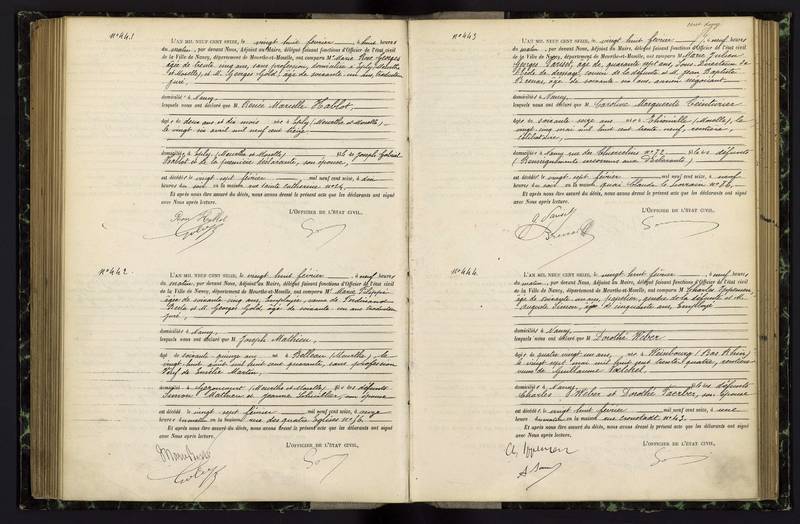 N° 441
L'AN MIL NEUF CENT SEIZE, le vingt huit février, à huit heures
du matin, par devant Nous, Adjoint au Maire, délégué faisant fonctions d'Officier de l'état civil
de la Ville de Nancy, département de Meurthe-et-Moselle, ont comparu Marie Rose Georges
âgée de trente cinq ans, sans profession, domiciliée à Eply (Meurthe
et Moselle), et M. Georges Gold, âgé de soixante un ans, traducteur
juré,
domiciliés à Nancy,
lesquels nous ont déclaré que M. Renée Marcelle Hablot,
âgée de deux ans et dix mois née à Eply (Meurthe et Moselle)
le vingt six avril mil neuf cent treize
domiciliée à Eply (Meurthe et Moselle) fille de Joseph Gabriel
Hablot et de la première déclarante, son épouse,
est décédée le vingt sept février, mil neuf cent seize, à
heures du soir en la maison rue sainte Catherine N° 24,
Et après nous être assuré du décès, nous avons dressé le présent acte que les déclarants ont signé
avec Nous après lecture.
L'OFFICIER DE L'ÉTAT CIVIL,
N° 442
L'AN MIL NEUF CENT SEIZE, le vingt huit février, à neuf heures
du matin, par devant Nous, Adjoint au Maire, délégué faisant fonctions d'Officier de l'état civil
de la Ville de Nancy, département de Meurthe-et-Moselle, ont comparu Marie
âgée de soixante cinq ans, Employée, veuve de Ferdinand
et M. Georges Gold, âgé de soixante un ans traducteur
juré,
domiciliés à Nancy,
lesquels nous ont déclaré que M. Joseph Mathieu,
âgé de soixante quinze ans né à Belleau (Meurthe), le
vingt huit août mil huit cent quarante, sans profession
Veuf de Emélie Martin,
domicilié à (Meurthe et Moselle) fils des défunts
Simon Mathieu et Jeanne son épouse
est décédé le vingt sept février mil neuf cent seize, à onze
heures du matin en la maison rue des quatre Eglises N° 56,
Et après nous être assuré du décès, nous avons dressé le présent acte que les déclarants ont signé
avec Nous après lecture.
L'OFFICIER DE L'ÉTAT CIVIL,
N° 443
L'AN MIL NEUF CENT SEIZE, le vingt huit février, à neuf heures
du matin, par devant Nous, Adjoint au Maire, délégué faisant fonctions d'Officier de l'état civil
de la Ville de Nancy, département de Meurthe-et-Moselle, ont comparu Marie Julien
Georges âgé de quarante sept ans, Sous Directeur
cousin de la défunte et M. Jean Baptiste
âgé de soixante un ans, ancien négociant
domiciliés à Nancy,
lesquels nous ont déclaré que M. Caroline Marguerite
âgée de soixante seize ans née à Thionville (Moselle), le
vingt cinq mai mil huit cent trente neuf, rentière,
célibataire,
domiciliée à Nancy rue des N° 72, fille des défunts
(Renseignements inconnus aux Déclarants)
est décédée le vingt sept février mil neuf cent seize, à neuf
heures du soir en la maison quai Claude le Lorrain N° 86,
Et après nous être assuré du décès, nous avons dressé le présent acte que les déclarants ont signé
avec Nous après lecture.
L'OFFICIER DE L'ÉTAT CIVIL,
N° 444
L'AN MIL NEUF CENT SEIZE, le vingt huit février, à neuf heures
du matin, par devant Nous, Adjoint au Maire, délégué faisant fonctions d'Officier de l'état civil
de la Ville de Nancy, département de Meurthe-et-Moselle, ont comparu Charles Ippensen
âgé de soixante un ans, gendre de la défunte et M.
Auguste Simon, âgé de cinquante ans, Employé
domiciliés à Nancy,
lesquels nous ont déclaré que M. Dorothé Weber
âgée de quatre vingt un ans, née à Weinbourg (Bas Rhin)
le vingt sept mil huit cent trente quatre, rentière
veuve de Guillaume Voelckel.
domiciliée à Nancy fille des défunts
Charles Weber et Dorothé son épouse
est décédée le vingt huit février mil neuf cent seize, à une
heure du matin en la maison rue N° 43.
Et après nous être assuré du décès, nous avons dressé le présent acte que les déclarants ont signé
avec Nous après lecture.
L'OFFICIER DE L'ÉTAT CIVIL,
Ch. Ippensen